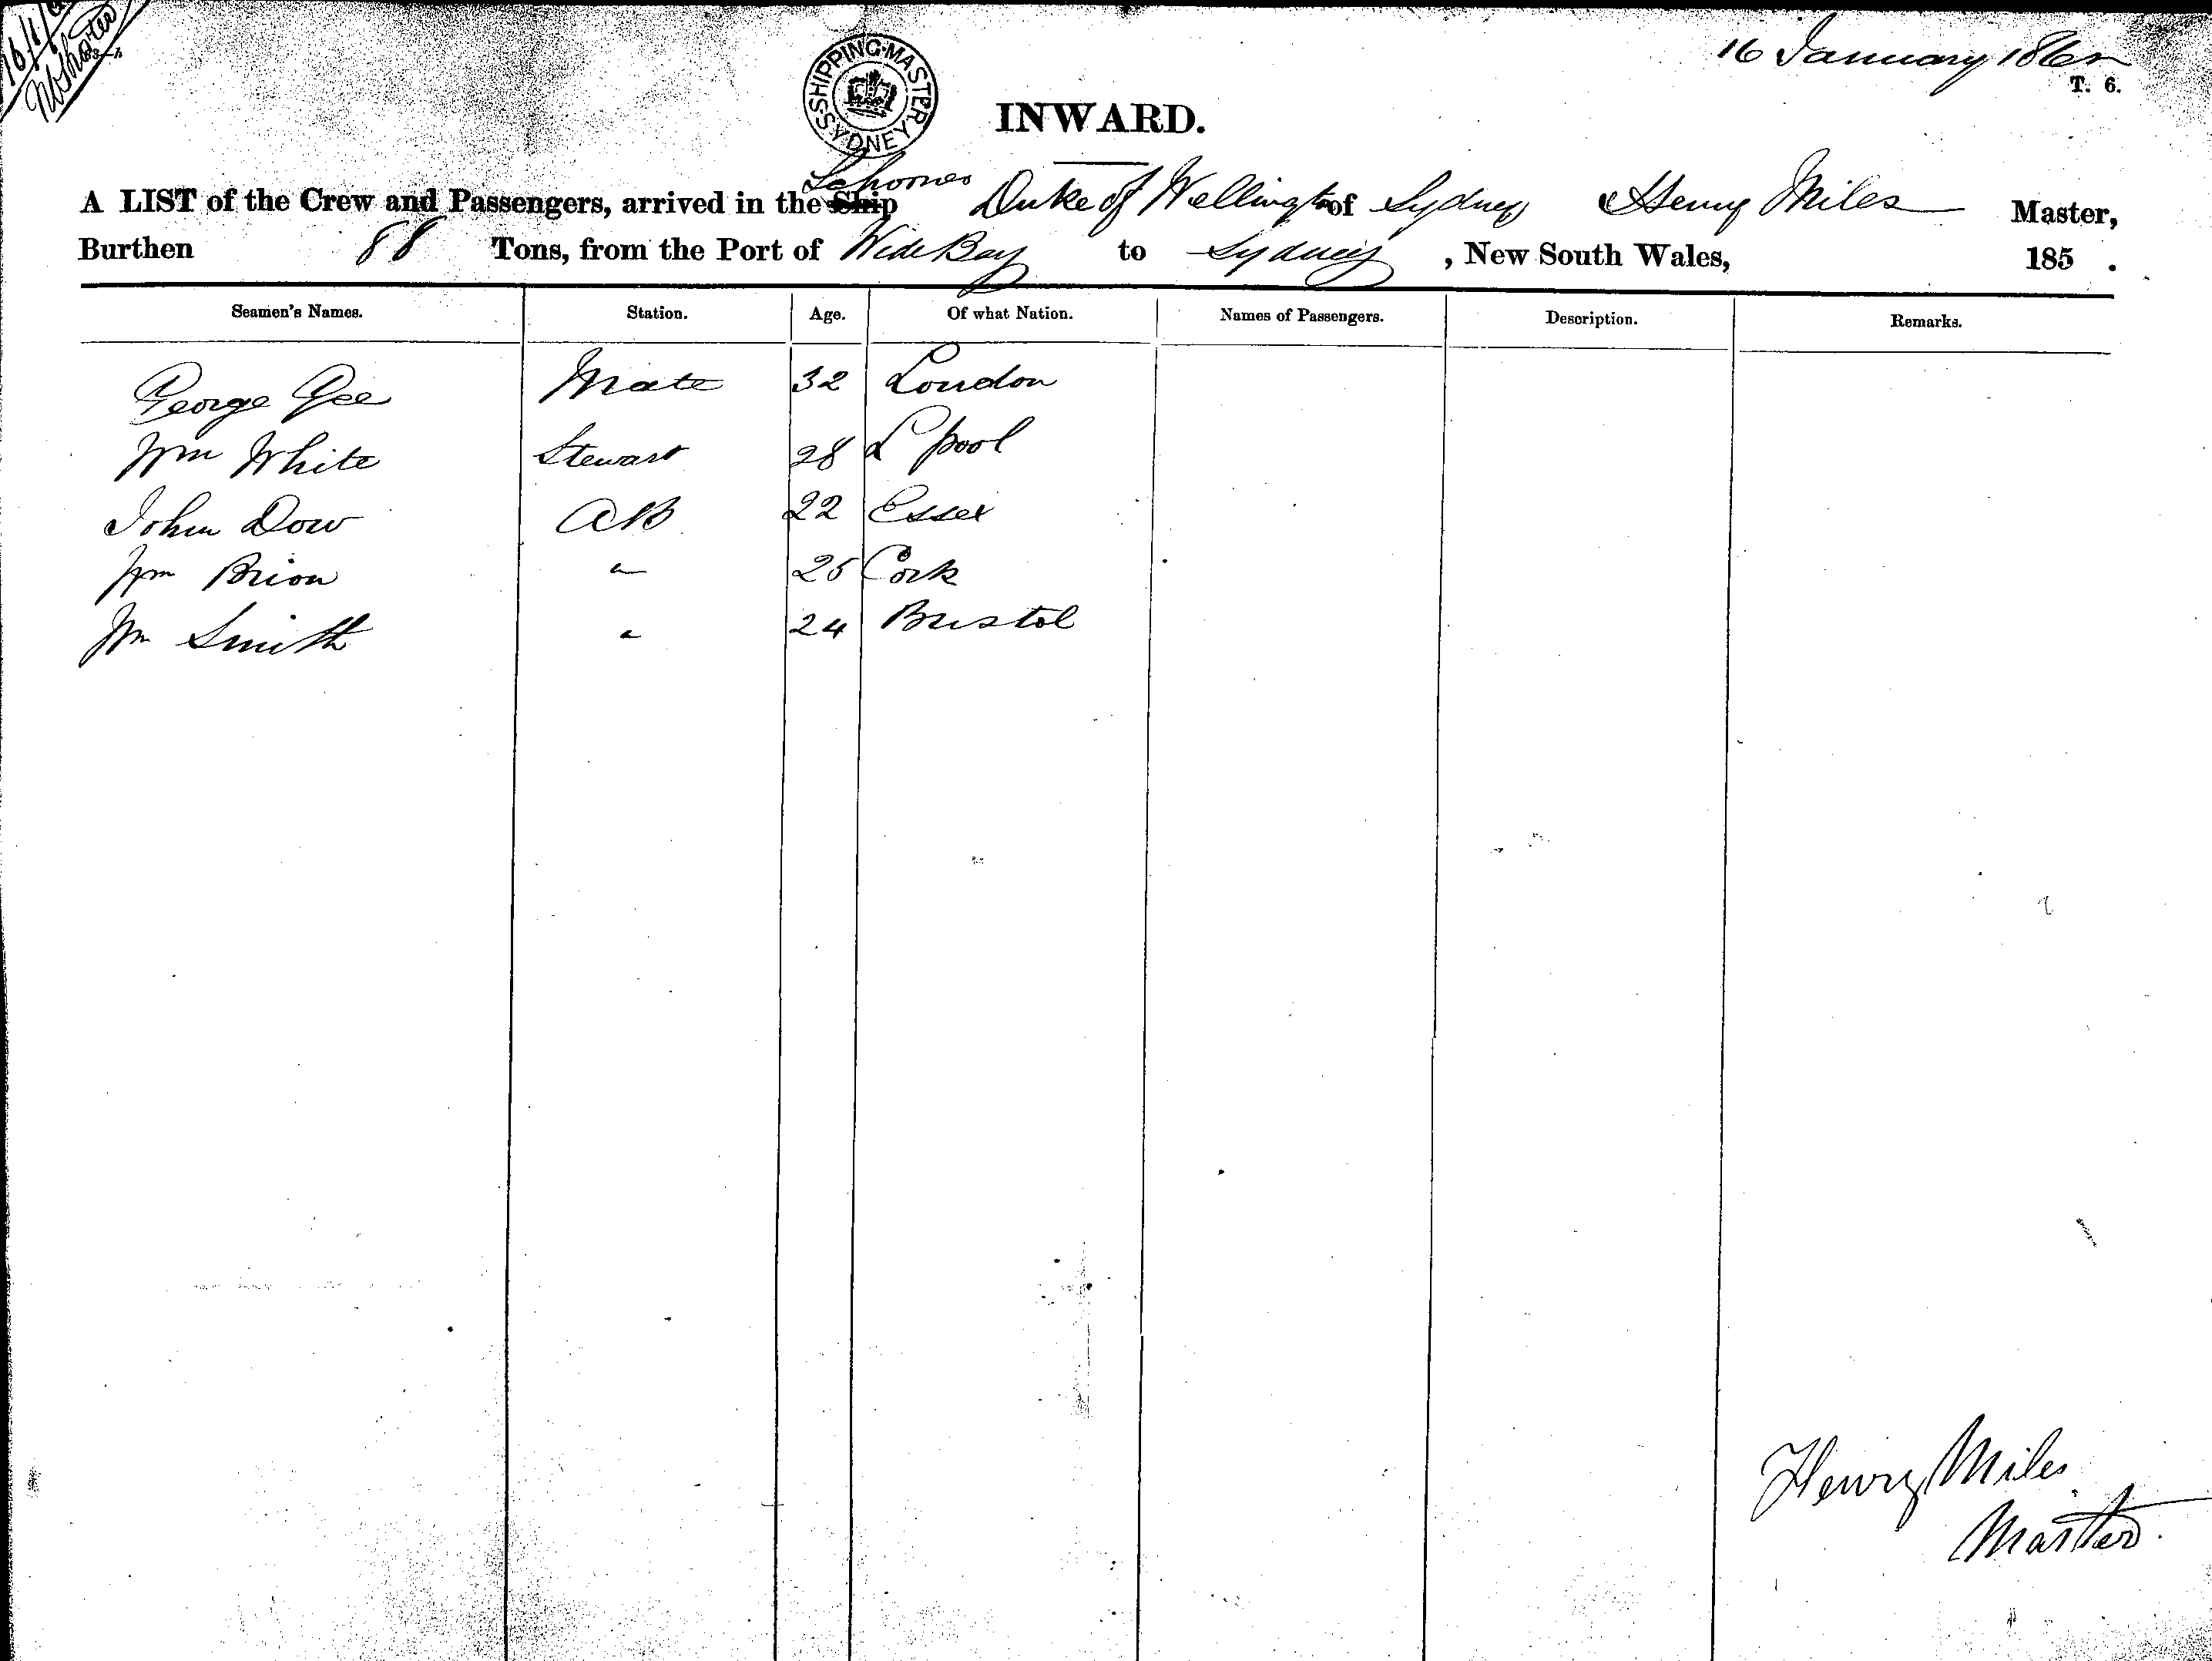 16 January 186
T. 6.
SHIPPING MASTER SYDNEY
INWARD.
Schooner
A LIST of the Crew and Passengers, arrived in the Ship Duke of Wellington of Sydney Henry Miles Master,
Burthen 88 Tons, from the Port of Wide Bay to Sydney , New South Wales, 185 .
Seamen's Names. Station. Age. Of what Nation. Names of Passengers. Description. Remarks.
George Gee Mate 32 London
Wm White Stewart 28 L pool
John Dow AB 22 Essex
Wm Brion " 25 Cork
Wm Smith " 24 Bristol
Henry Miles
Master